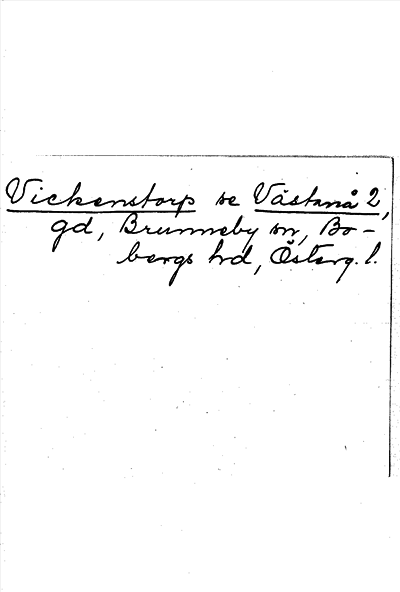 Vickenstorp se Västanå 2,
gd, Brunneby sn, Bo-
bergs hd, Österg. l.